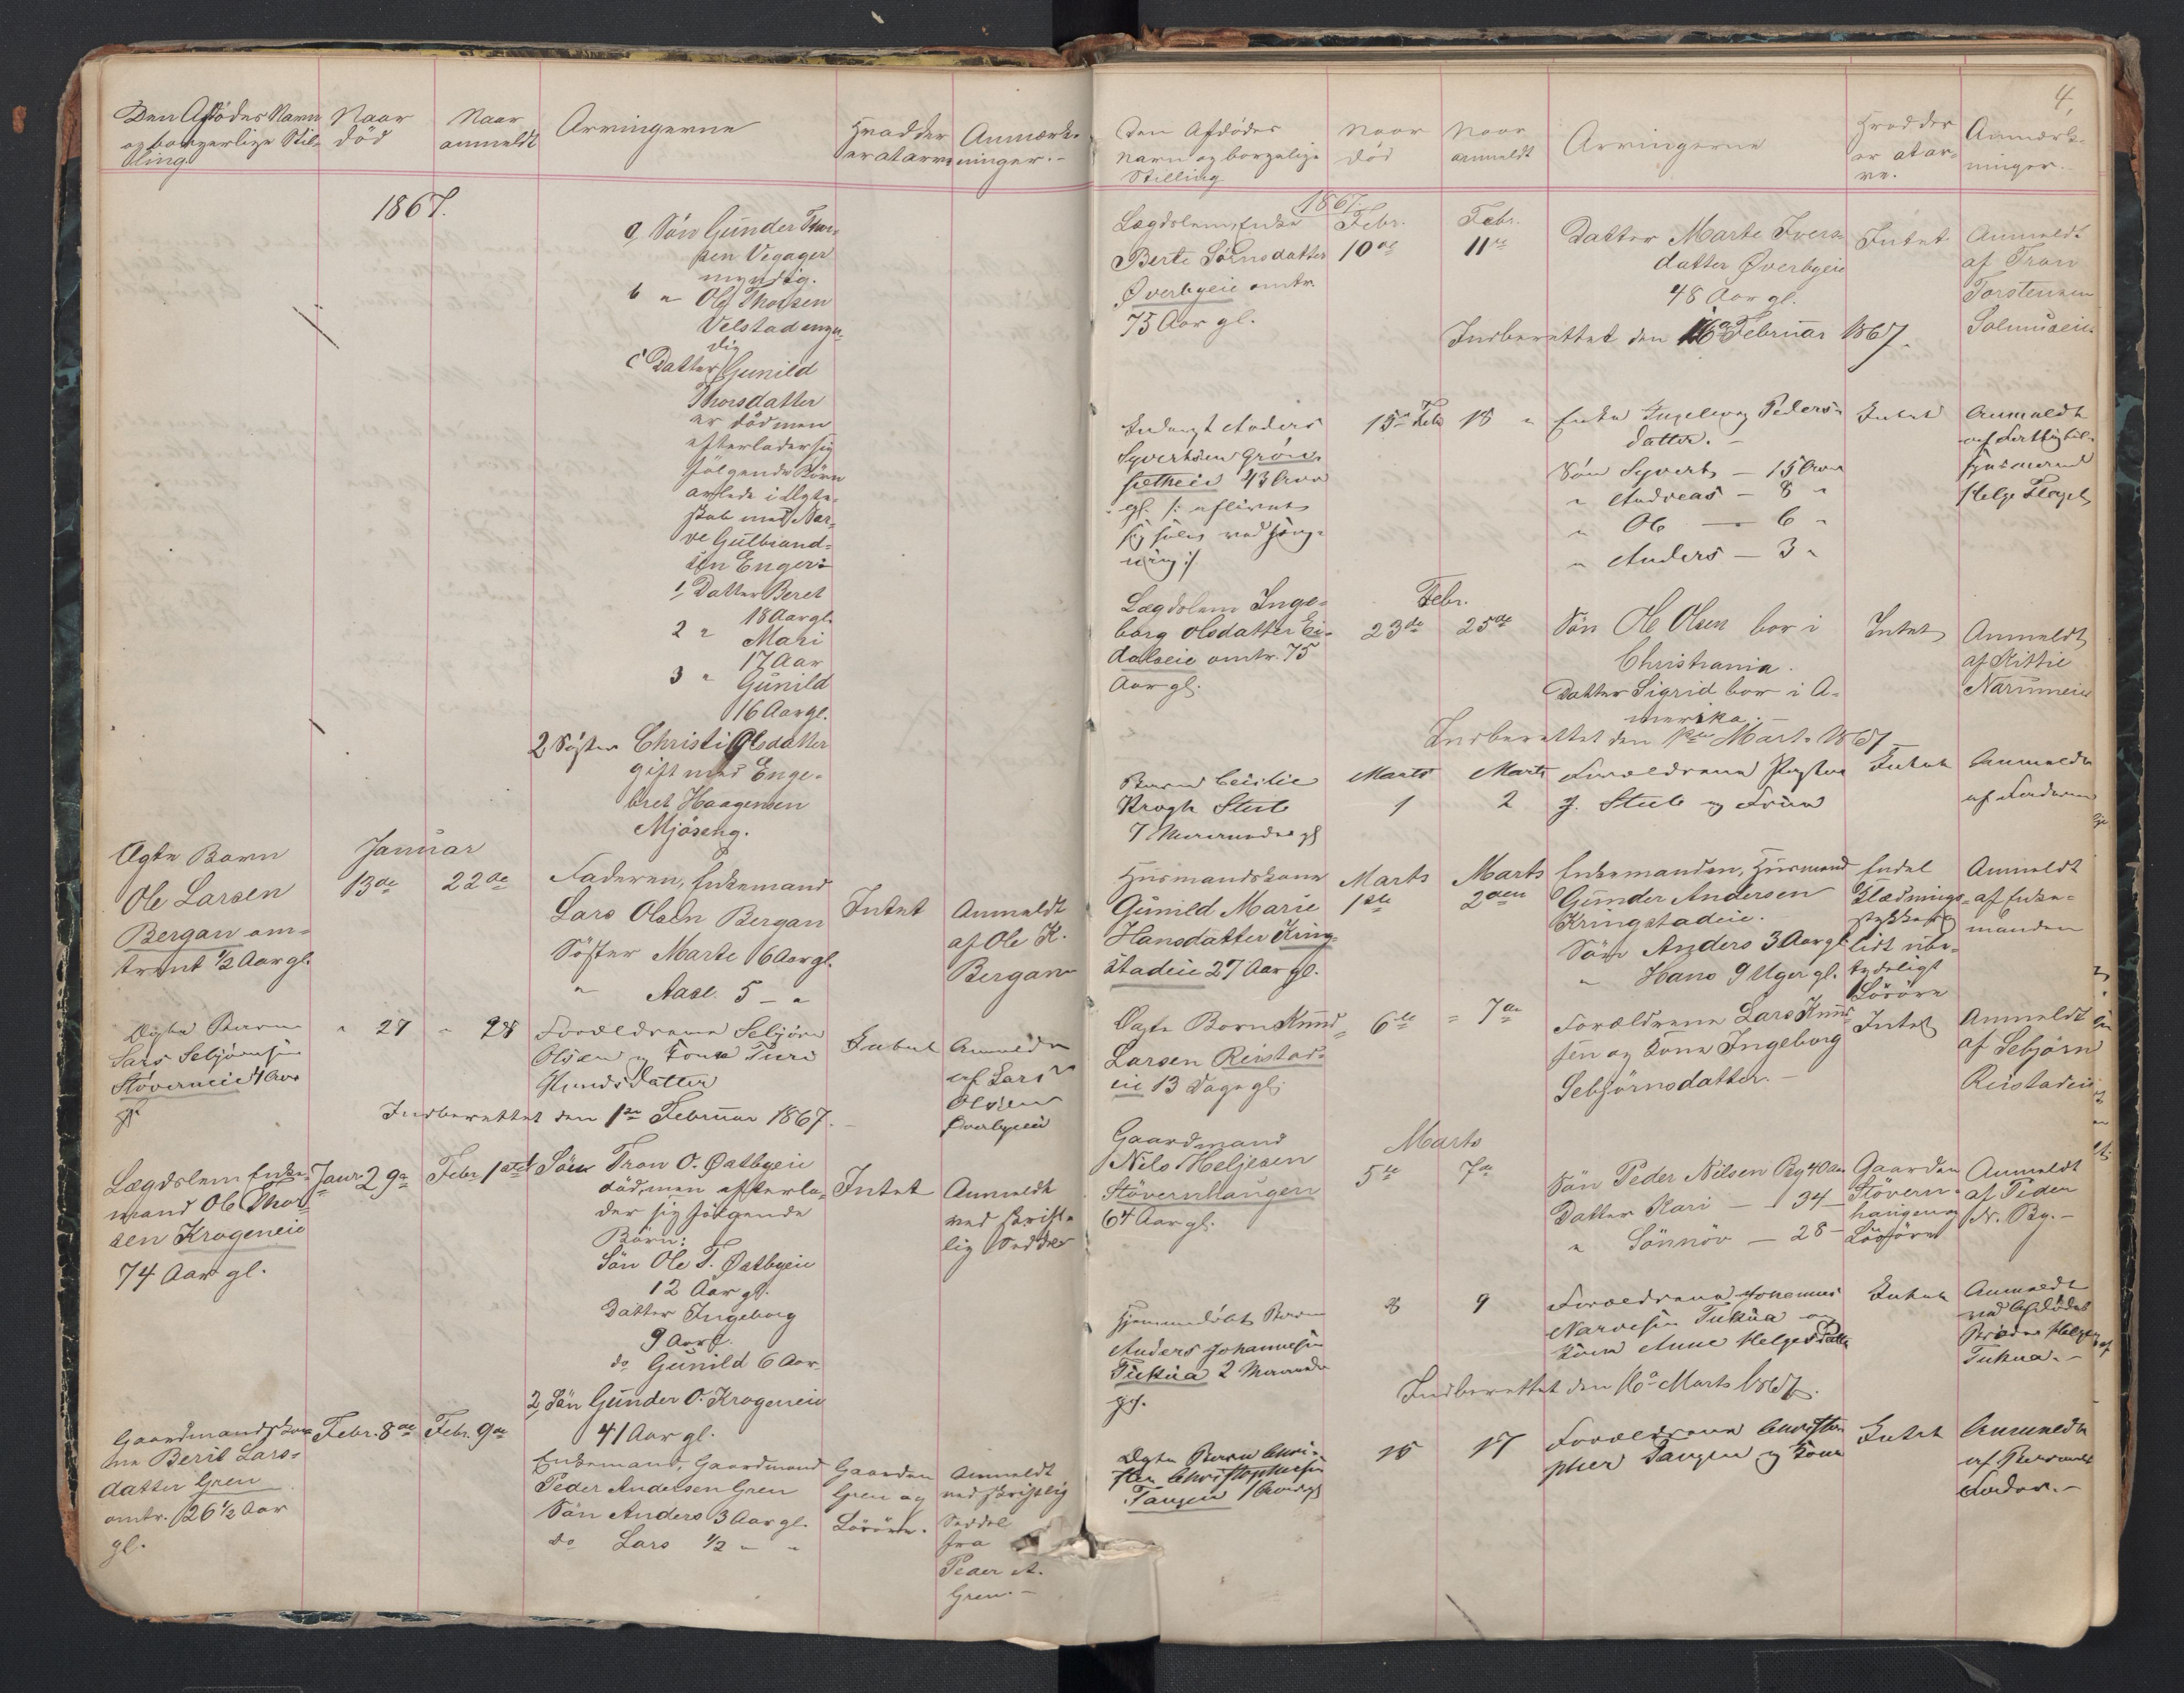 Den Afdødes Navn
og borgerlige Stil-
ling
Naar
død
Naar
anmeldt
Arvingerne
Hvad der
er at arve
Anmærk-
ninger.-
1867.
a, Søn Gunder Thor-
sen Vegager
myndig.
b " Ole Thorsen
Velstad myn-
dig
c Datter Gunild
Thorsdatter
er død men
efterlader sig
følgende Børn
avlede i Ægte-
skab med Nar-
ve Gulbrand-
sen Enger:
1, Datter Beret
18 Aar gl.
2 " Mari
17 Aar
3 " Gunild
16 Aar gl.
2, Søster Christi Olsdatter
gift med Enge-
bret Haagensen
Mjøseng.
Ægte Barn
Ole Larsen
Bergan om-
trent ½ Aar gl.
Januar
13de 22de
Faderen, Enkemand
Lars Olsen Bergan
Søster Marte 6 Aar gl.
" Aase 5 - "
Intet
Anmeldt
af Ole K.
Bergan
Ægte Barn
Lars Sebjørnsen
Støverneie 4 Aar
gl.
" 27 " 28
Forældrene Sebjørn
Olsen og Kone Turi
Gundsdatter
Intet
Anmeldt
af Lars
Olsen
Øverbyeie
Indberettet den 1ste Februar 1867.
Lægdslem Enke-
mand Ole Thor-
sen Krogeneie
74 Aar gl.
Januar 29de Febr. 1ste
1 Søn Tron O. Østbyeie
død, men efterla-
der sig følgende
Børn:
Søn Ole T. Østbyeie
12 Aar gl.
Datter Ingeborg
9 Aar gl.
do Gunild 6 Aar
2, Søn Gunder O. Krogeneie
41 Aar gl.
Intet
Anmeldt
ved skrift-
lig Seddel
Gaardmandsko-
ne Berit Lars-
datter Gren
omtr. 26½ Aar
gl.
Febr. 8de Febr. 9de
Enkemand, Gaardmand
Peder Andersen Gren
Søn Anders 3 Aar gl.
do Lars ½ " "
Gaarden
Gren og
Løsøre.
Anmeldt
ved skriftlig
Seddel
fra
Peder A.
Gren.-
4,
Den Afdødes
Navn og borgelige
Stilling
Naar
død
Naar
anmeldt
Arvingerne
Hvad der
er at ar-
ve.
Anmærk-
ninger.-
1867.
Lægdslem, Enke
Berte Sørnsdatter
Øverbyeie omtr.
75 Aar gl.
Febr. Febr.
10de 11te
Datter Marte Ivers-
datter Øverbyeie
48 Aar gl.
Intet
Anmeldt
af Tron
Torstensen
Solmuseie
Indberettet den 16de Februar 1867.
Inderst Anders
Syvertsen Grøn-
sletheie 43 Aar
gl. /: aflivet
sig selv ved Hæng-
ning :/
15de Feb 18 "
Enke Ingeborg Peders-
datter.-
Søn Syvert - 15 Aar
" Andreas - 8 "
" Ole - 6 "
" Anders - 3 "
Intet
Anmeldt
af
Husmand
Helge
Lægdslem Inge-
borg Olsdatter Ei-
dalseie omtr. 75
Aar gl.
Febr.
23de 25de
Søn Ole Olsen bor i
Christiania.
Datter Sigrid bor i A-
merika.-
Intet
Anmeldt
af Kittil
Narumeie
Indberettet den 1ste Marts 1867
Barn Ceicilie
Krogh Steib
7 Maaneder gl
Marts Marts
1 2
Forældrene Pastor
J. Steib og Frue
Intet
Anmeldt
af Faderen
Husmandskone
Gunild Marie
Hansdatter Kring-
stadeie 27 Aar gl.
Marts Marts
1ste 2den
Enkemanden, Husmand
Gunder Andersen
Kringstadeie.
Søn Anders 3 Aar gl.
" Hans 9 Uger gl.
Endel
Klædnings-
stykker og
lidt ube-
tydeligt
Løsøre
Anmeldt
af Enke-
manden
Ægte Barn Knud
Larsen Reistad-
eie 13 Dage gl.
6te " 7de
Forældrene Lars Knud-
sen og Kone Ingeborg
Sebjørnsdatter.-
Intet
Anmeldt
af Sebjørn
Reistadeie
Gaardmand
Nils Heljesen
Støvernhaugen
64 Aar gl.
Marts
5te 7de
Søn Peder Nilsen By 40 Aar
Datter Kari - 34 -
" Sønnøv - 28 -
Gaarden
Støvern-
haugen og
Løsøre
Anmeldt
af Peder
N. By.-
Hjemmedøbt Barn
Anders Johannesen
Tukua 2 Maaneder
gl.
8 9
Forældrene Johannes
Narvesen Tukua og
Kone Anne Helgesdatter
Intet
Anmeldt
ved Afdødes
Broder Helge
Tukua.-
Indberettet den 16de Marts 1867.
Ægte Barn Chri-
sten Christophersen
Tangen 1 Aar gl
15 17
Forældrene Christo-
pher Tangen og Kone
Intet
Anmeldt
af Barnets
Fader.-